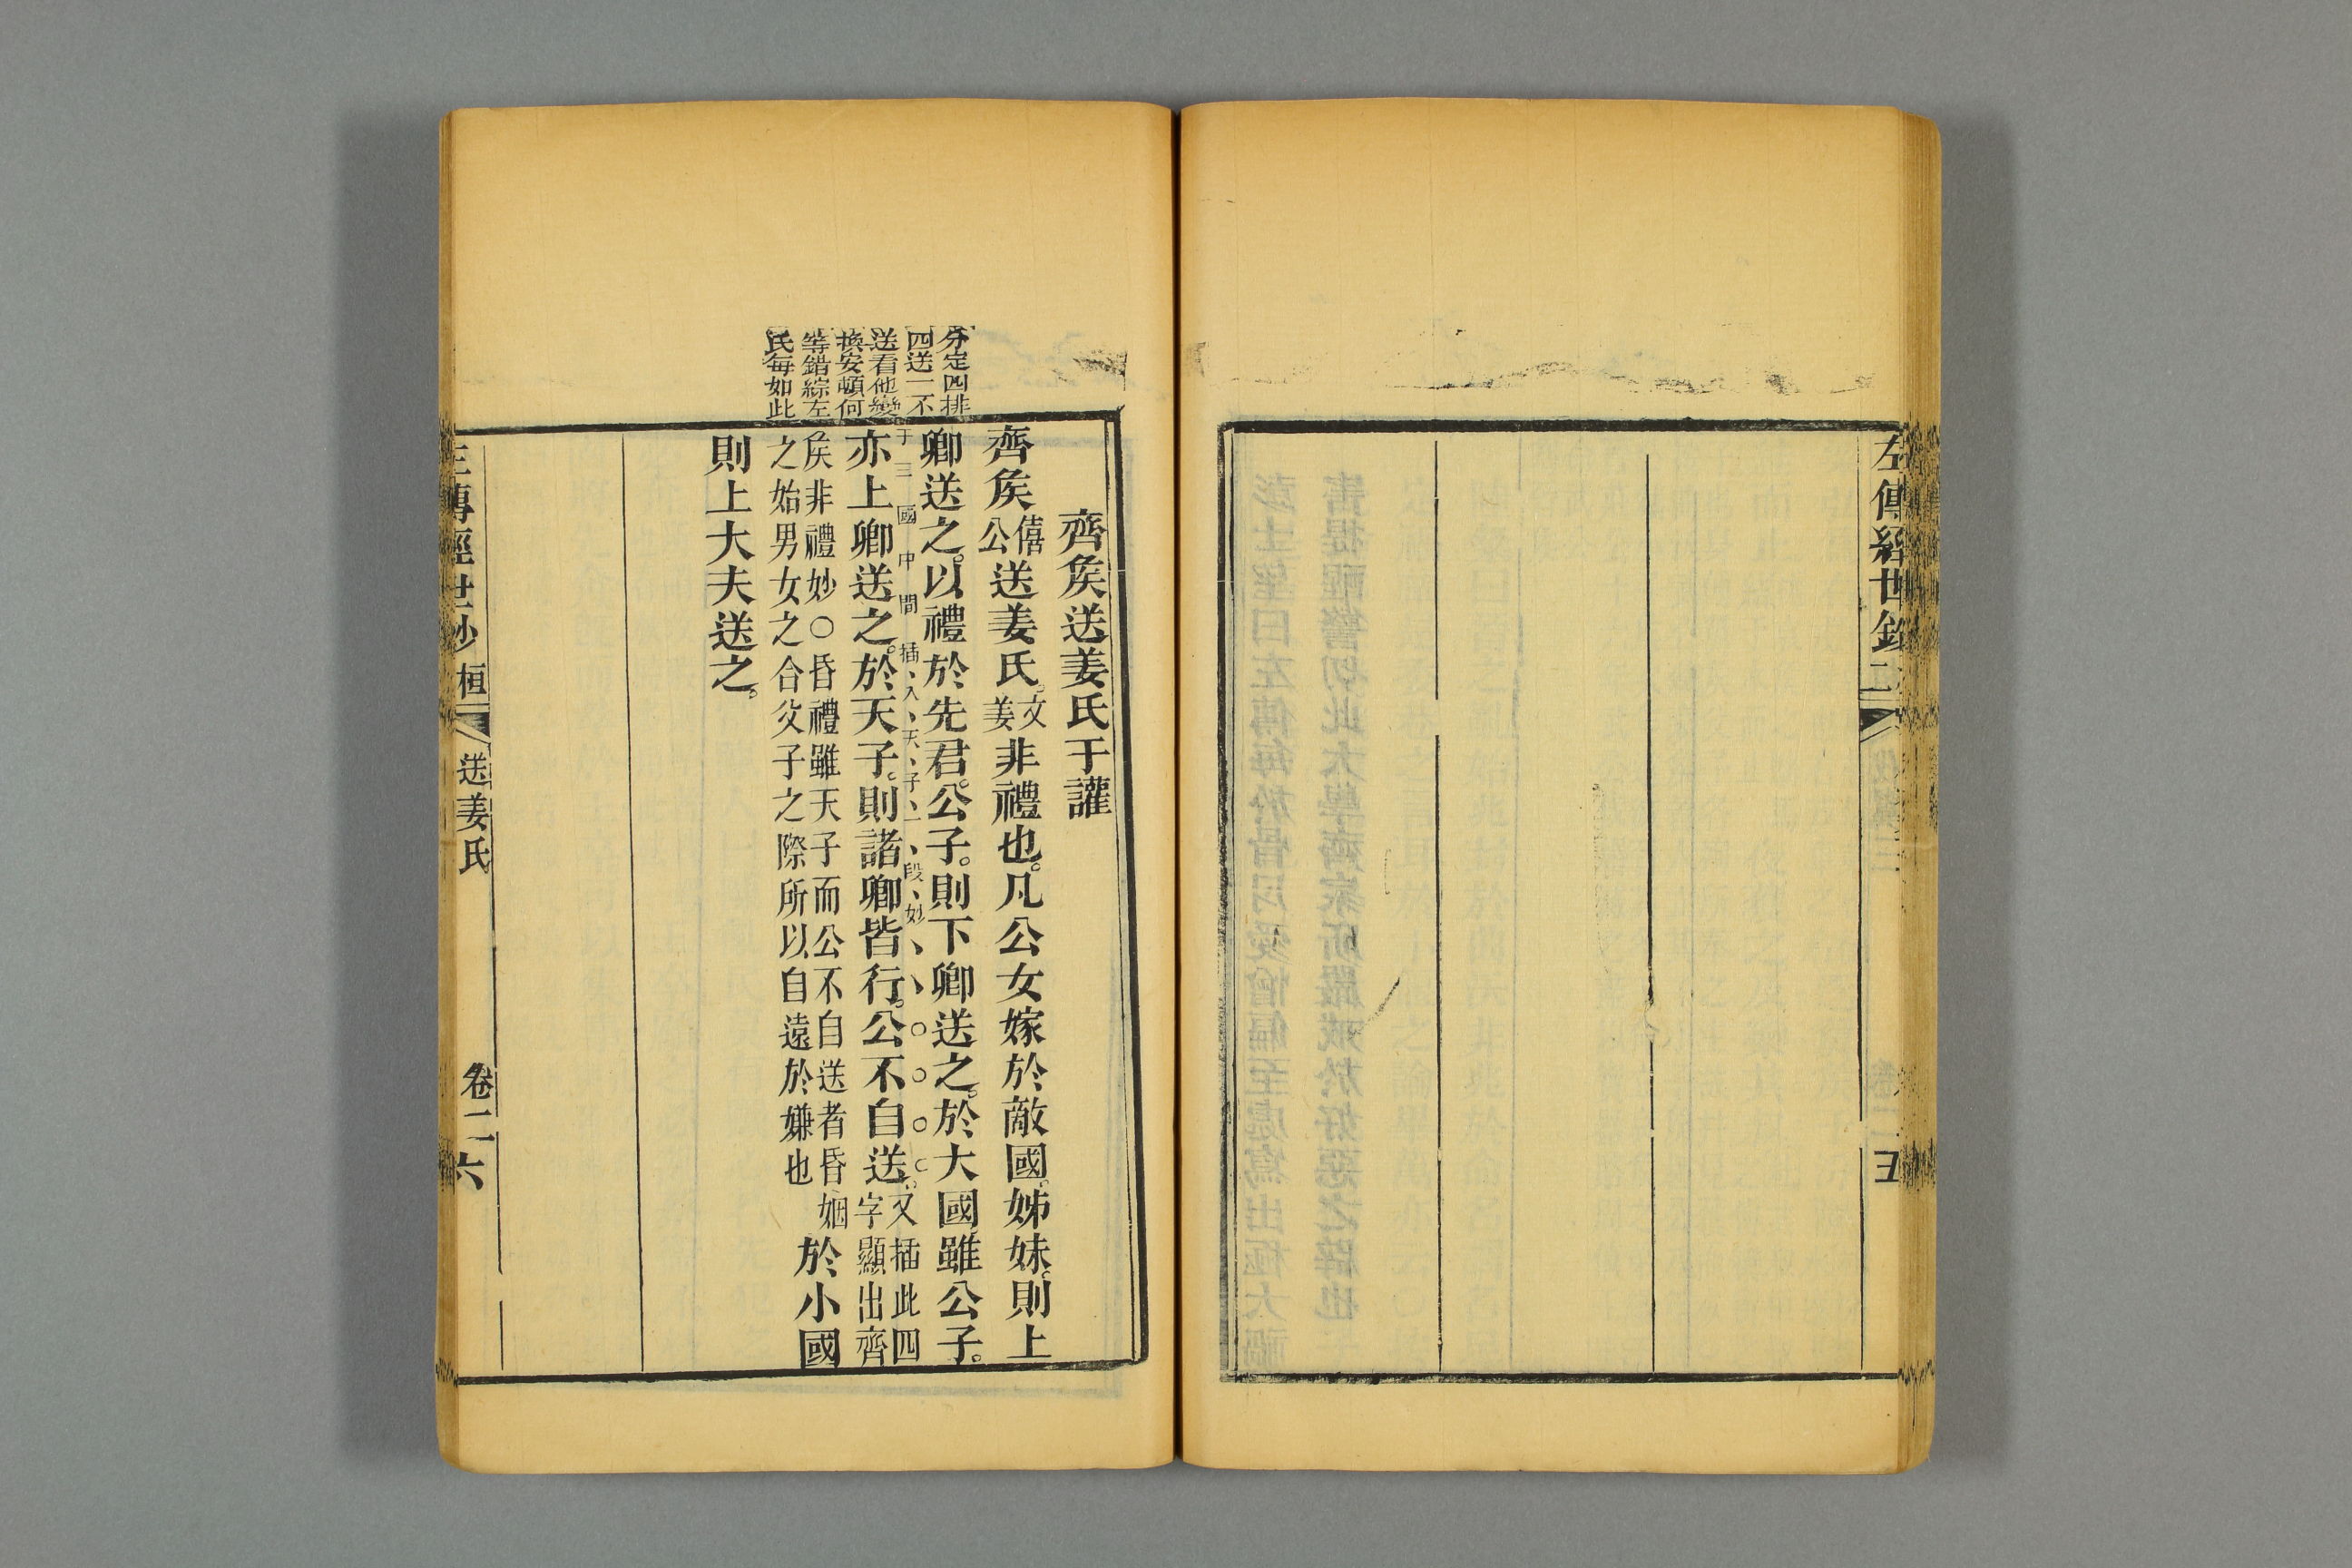 左傳經世鈔
五
分定四排
四送一不
送看他變
換安頓何
等錯綜左
氏每如此
齊矦送姜氏于讙
齊矦僖公送姜氏文姜非禮也凡公女嫁於敵國姊妹則上
卿送之以禮於先君公子則下卿送之於大國雖公子
于三國中間插入天子一段妙
亦上卿送之於天子則諸卿皆行公不自送又插此四字顯出齊
矦非禮妙○昏禮雖天子而公不自送者昏姻
之始男女之合父子之際所以自遠於嫌也
於小國
則上大夫送之
左傳經世鈔 桓 送姜氏 卷二 六